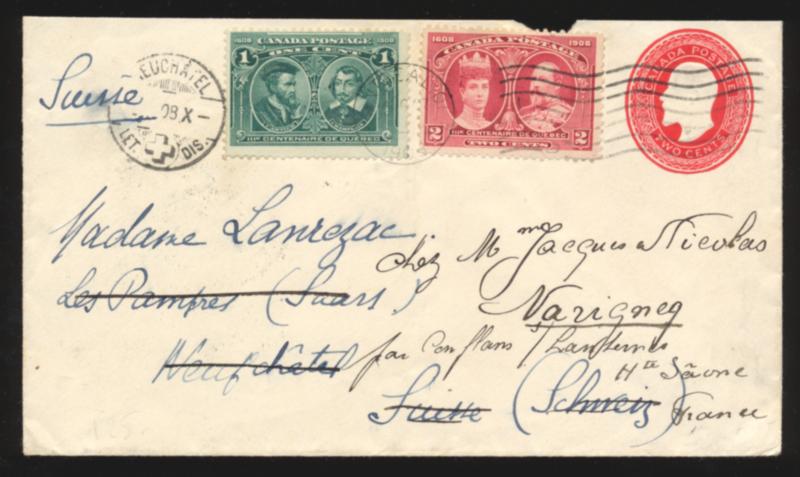 Suisse
EUCHATEL
08 X
LET. DIS.
1608 CANADA POSTAGE 1908
1 ONE CENT 1
IIIe CENTENAIRE DE QUÉBEC
1608 1908
CANADA POSTAGE
IIIe CENTENAIRE DE QUÉBEC
2 TWO CENTS 2
CANADA POSTAGE
TWO CENTS
Madame Lanrezac
Les Pampres (Saars)
Neufchâtel
Suisse (Schweiz)
chez Mme Jacques Nicolas
Varigney
par Conflans s/ Lanterne
Hte Saône
France